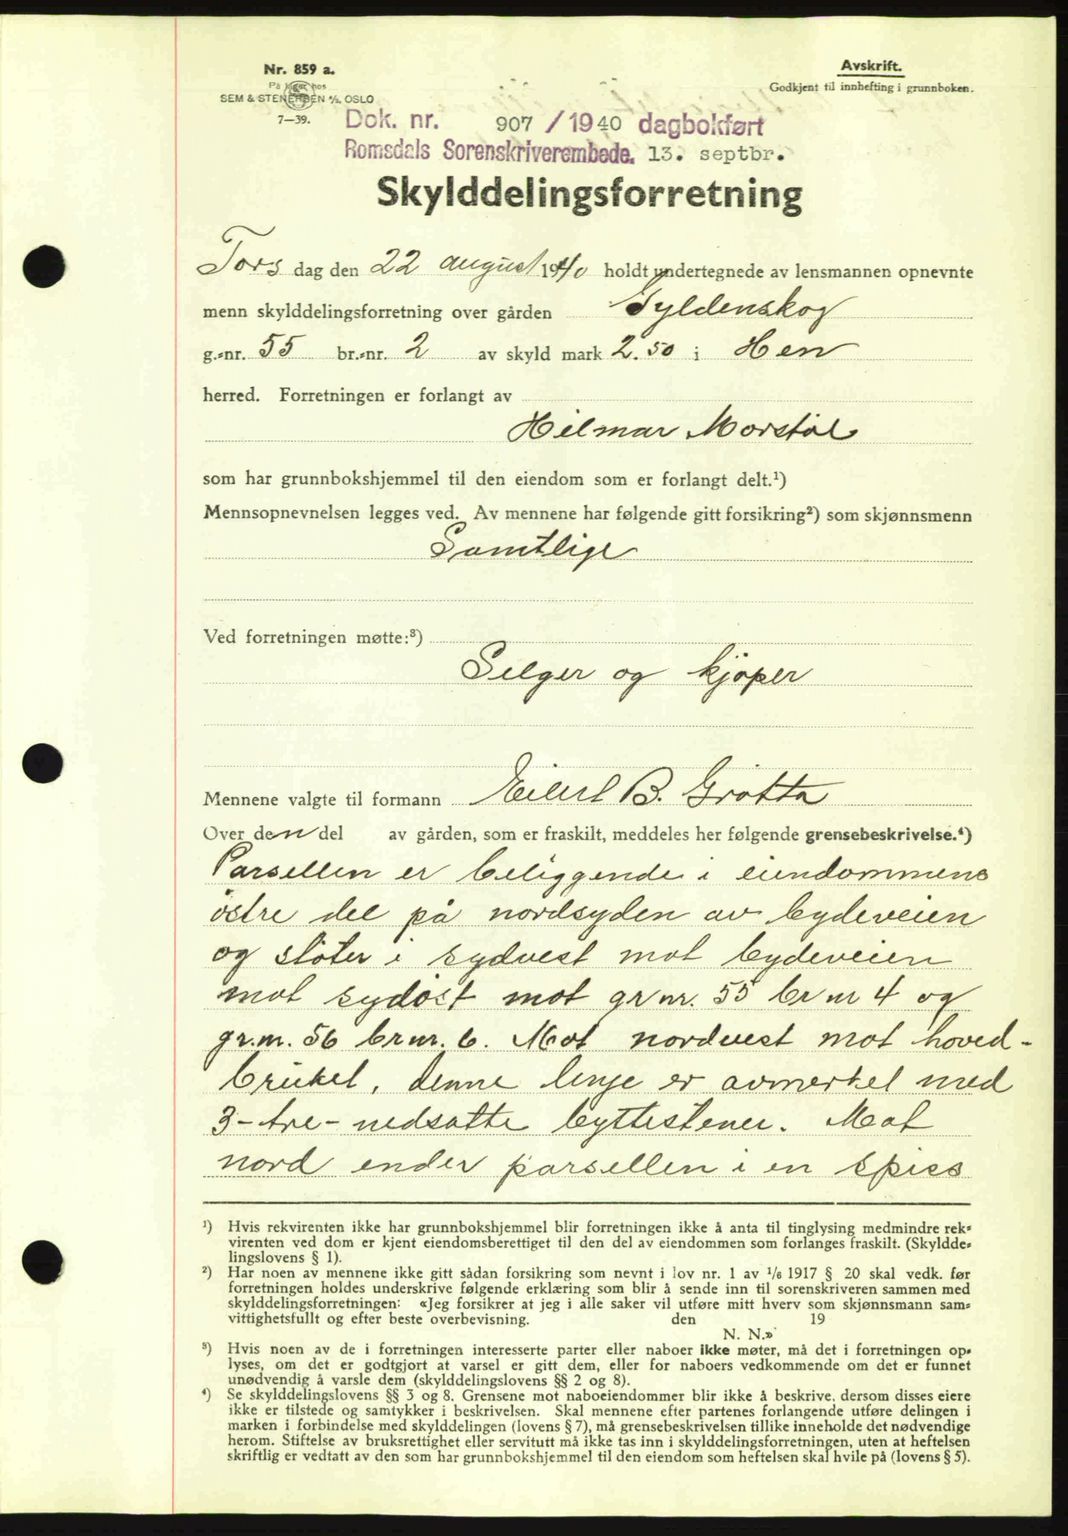 Nr. 859 a.
På lager hos
SEM & STENERSEN A/S, OSLO
7—39.
Avskrift.
Godkjent til innhefting i grunnboken.
Dok. nr. 907 / 1940 dagbokført
Romsdals Sorenskriverembede. 13. septbr.
Skylddelingsforretning
Tors dag den 22 august 1940 holdt undertegnede av lensmannen opnevnte
menn skylddelingsforretning over gården Gyldenskog
g.=nr. 55 br.=nr. 2 av skyld mark 2.50 i Hen
herred. Forretningen er forlangt av
Hilmar Morstøl
som har grunnbokshjemmel til den eiendom som er forlangt delt.¹)
Mennsopnevnelsen legges ved. Av mennene har følgende gitt forsikring²) som skjønnsmenn
Samtlige
Ved forretningen møtte:³)
Selger og kjøper
Mennene valgte til formann Eilert B. Grøtta
Over den del av gården, som er fraskilt, meddeles her følgende grensebeskrivelse.⁴)
Parsellen er beliggende i eiendommens
östre del på nordsyden av bydeveien
og støter i sydvest mot bydeveien
mot sydöst mot gr nr. 55 br nr 4 og
gr.nr. 56 br nr. 6. Mot nordvest mot hoved-
bruket, denne linje er avmerket med
3-tre- nedsatte byttestener. Mot
nord ender parsellen i en spiss
¹) Hvis rekvirenten ikke har grunnbokshjemmel blir forretningen ikke å anta til tinglysing medmindre rek=
virenten ved dom er kjent eiendomsberettiget til den del av eiendommen som forlanges fraskilt. (Skyldde=
lingslovens § 1).
²) Har noen av mennene ikke gitt sådan forsikring som nevnt i lov nr. 1 av 1/6 1917 § 20 skal vedk. før
forretningen holdes underskrive følgende erklæring som blir å sende inn til sorenskriveren sammen med
skylddelingsforretningen: «Jeg forsikrer at jeg i alle saker vil utføre mitt hverv som skjønnsmann sam=
vittighetsfullt og efter beste overbevisning. den 19
N. N.»
³) Hvis noen av de i forretningen interesserte parter eller naboer ikke møter, må det i forretningen op=
lyses, om det er godtgjort at varsel er gitt dem, eller for naboers vedkommende om det er funnet
unødvendig å varsle dem (skylddelingslovens §§ 2 og 8).
⁴) Se skylddelingslovens §§ 3 og 8. Grensene mot naboeiendommer blir ikke å beskrive, dersom disses eiere
ikke er tilstede og samtykker i beskrivelsen. Skal mennene efter partenes forlangende utføre delingen i
marken i forbindelse med skylddelingen (lovens § 7), må grensebeskrivelsen tillike inneholde det nødvendige
herom. Stiftelse av bruksrettighet eller servitutt må ikke tas inn i skylddelingsforretningen, uten at heftelsen
skriftlig er vedtatt av den som har grunnbokshjemmel til den eiendom som heftelsen skal hvile på (lovens § 5).